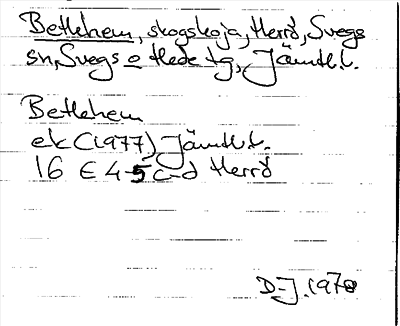 Betlehem, skogskoja, Herrö, Svegs
sn, Svegs o Hede tg, Jämtl.l.
Betlehem
ek (1977) Jämtl.l.
16 E 4-5 c-d Herrö
D-J. 1978